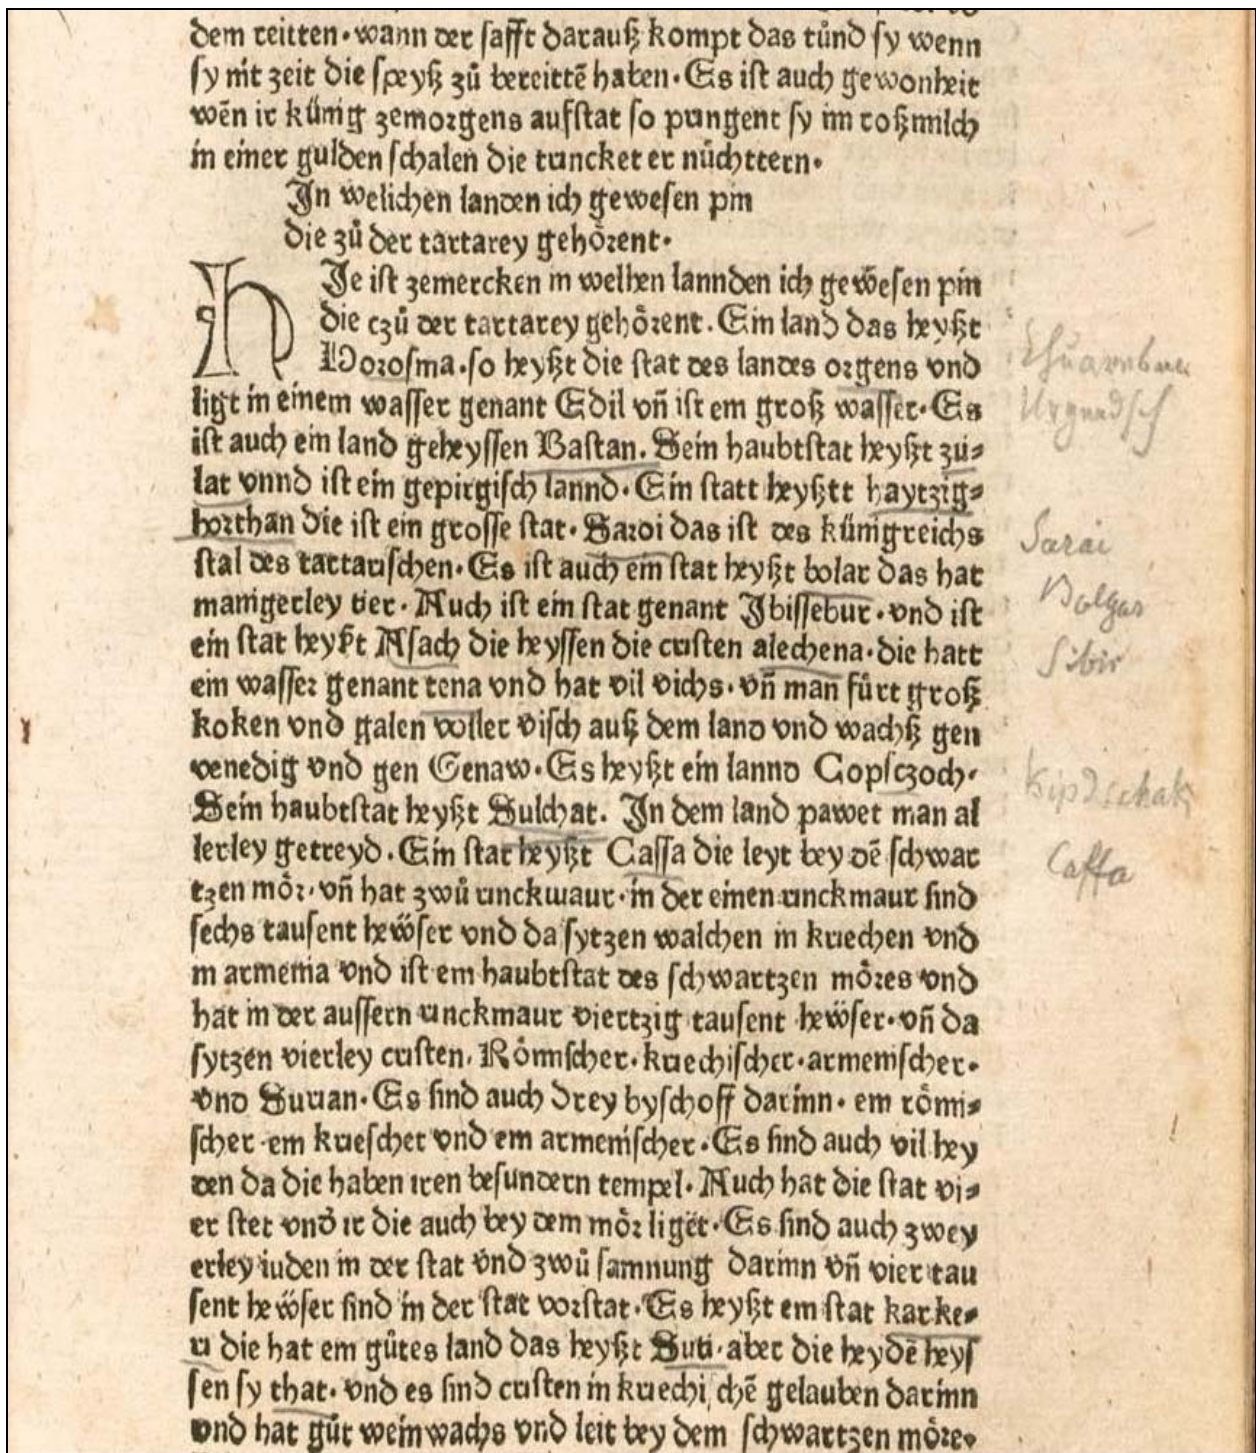 dem reitten. wann der safft darauß kompt das tůnd sy wenn
sy nit zeit die speyß zů bereittē haben. Es ist auch gewonheit
wēn ir künig zemorgens aufstat so pringent sy im roßmilch
in einer gulden schalen die trincket er nüchttern.
In welichen landen ich gewesen pin
die zů der tartarey gehörent.
HJe ist zemercken in welhen lannden ich gewesen pin
die czů der tartarey gehörent. Ein land das heyßt
Horosma. so heyßt die stat des landes orgens vnd
ligt in einem wasser genant Edil vñ ist ein groß wasser. Es
ist auch ein land geheyssen Bastan. Sein haubtstat heyßt zu-
lat vnnd ist ein gepirgisch lannd. Ein statt heyßtt haytzig-
horthan die ist ein grosse stat. Saroi das ist des künigreichs
stal des tartarischen. Es ist auch ein stat heyßt bolar das hat
manigerley tier. Auch ist ein stat genant Jbissebur. vnd ist
ein stat heyßt Asach die heyssen die cristen alechena. die hatt
ein wasser genant tena vnd hat vil vichs. vñ man fürt groß
koken vnd galen voller visch auß dem land vnd wachß gen
venedig vnd gen Genaw. Es heyßt ein lannd Copsczoch.
Sein haubtstat heyßt Sulchat. In dem land pawet man al
lerley getreyd. Ein stat heyßt Caffa die leyt bey dē schwar
tzen mör. vñ hat zwů rinckmaur. in der einen rinckmaur sind
sechs tausent hewser vnd da sytzen walchen in kriechen vnd
in armenia vnd ist ein haubtstat des schwartzen möres vnd
hat in der aussern rinckmaur viertzig tausent hewser. vñ da
sytzen vierley cristen. Römischer. kriechischer. armenischer.
vnd Surian. Es sind auch drey byschoff darinn. ein römi-
scher ein kriescher vnd ein armenischer. Es sind auch vil hey
den da die haben iren besundern tempel. Auch hat die stat vi-
er stet vnd ir die auch bey dem mör liget. Es sind auch zwey
erley iuden in der stat vnd zwů samnung darinn vñ vier tau
sent hewser sind in der stat vorstat. Es heyßt ein stat karke-
ri die hat ein gůtes land das heyßt Suti. aber die heydē heys
sen sy that. vnd es sind cristen in kriechischē gelauben darinn
vnd hat gůt weinwachs vnd leit bey dem schwartzen möre.
Urgendsch
Sarai
Bolgar
Sibir
Kipdschak
Caffa